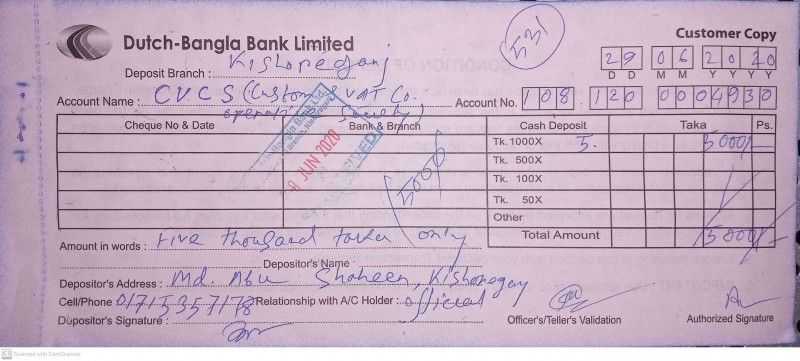 Dutch-Bangla Bank Limited
Customer Copy
Deposit Branch : Kishoreganj
29 06 2020
D D M M Y Y Y Y
Account Name : CVCS (Custom & VAT Co.
operative Society)
Account No. 108 120 0004930
Cheque No & Date Bank & Branch Cash Deposit Taka Ps.
Tk. 1000X 5. 5000/-
Tk. 500X
Tk. 100X
Tk. 50X
Other
Total Amount 5000/-
JUN 2020
RECEIVED
Amount in words : Five thousand taka only
Depositor's Name
Depositor's Address : Md. Abu Shaheen, Kishoregonj
Cell/Phone 01715357178 Relationship with A/C Holder : official
Depositor's Signature :
Officer's/Teller's Validation
Authorized Signature
CS Scanned with CamScanner